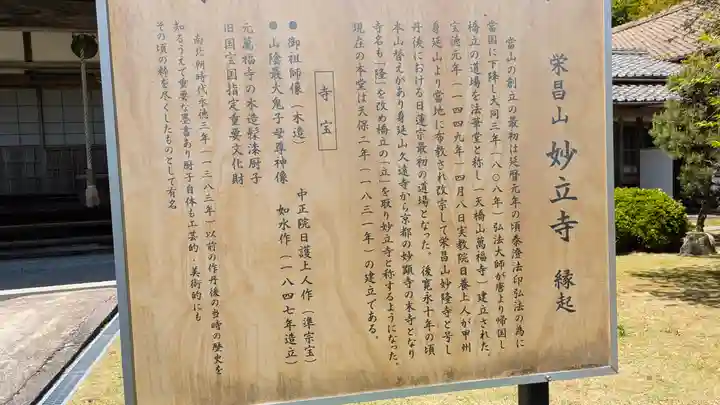 栄昌山 妙立寺 縁起
当山の創立の最初は延暦元年の頃泰澄法印弘法の為に
當国に下降し大同三年(八〇八年)弘法大師が唐より帰国し
橋立の道場を法華堂と称し(天橋山萬福寺)建立された。
宝徳元年(一四四九年)四月八日実教院日養上人が甲州
身延山より當地に布教され改宗して栄昌山妙隆寺と号し
丹後における日蓮宗最初の道場となった。後寛永十年の頃
本山替えがあり身延山久遠寺から京都の妙顕寺の末寺となり
寺名も「隆」を改め橋立の「立」を取り妙立寺と称するようになった。
現在の本堂は天保二年(一八三一年)の建立である。
寺宝
●御祖師像(木造) 中正院日護上人作(準宗宝)
●山陰最大鬼子母尊神像 如水作(一八四七年造立)
元萬福寺の木造髹漆厨子
旧国宝国指定重要文化財
南北朝時代永徳三年(一三八三年)以前の作丹後の当時の歴史を
知るうえで重要な墨書あり厨子自体も工芸的・美術的にも
その頃の粋を尽くしたものとして有名